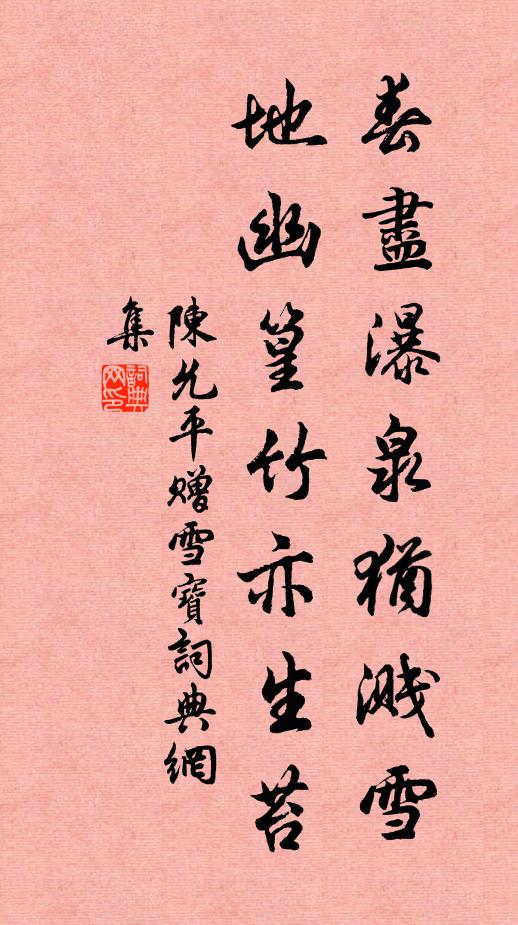 春盡瀑泉猶濺雪
地幽篁竹亦生苔
陳允平贈雪寶詞典網
集
詞典網印